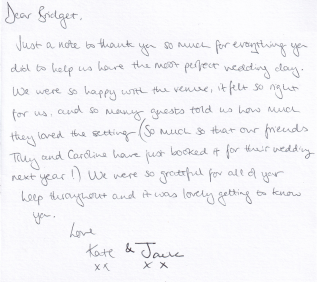 Dear Bridget,
Just a note to thank you so much for everything you
did to help us have the most perfect wedding day.
We were so happy with the venue, it felt so right
for us, and so many guests told us how much
they loved the setting (so much so that our friends
Tilly and Caroline have just booked it for their wedding
next year!) We were so grateful for all of your
help throughout and it was lovely getting to know
you.
Love
Kate & Jack
xx x x